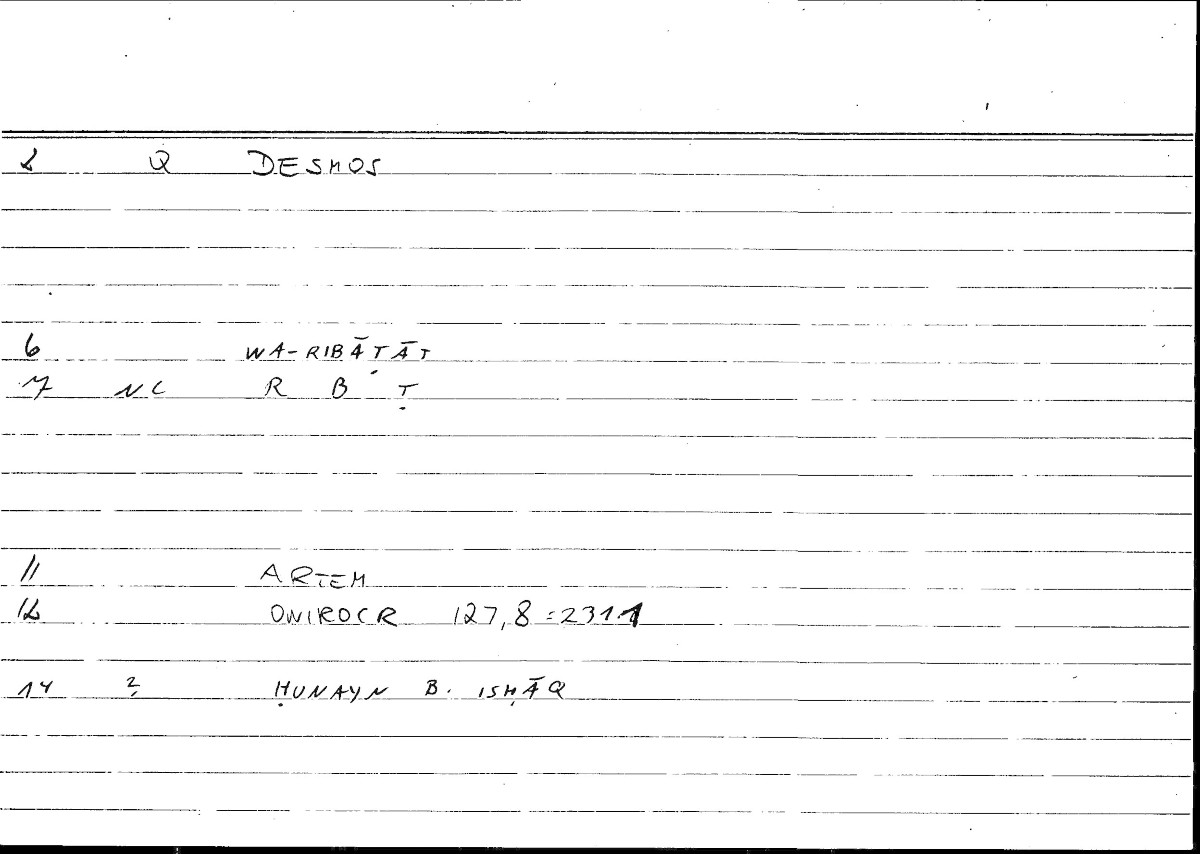 2 Q DESMOS
6 WA-RIBĀṬĀT
7 NC R B Ṭ
11 ARTEM
12 ONIROCR 127,8=231.1
14 ? ḤUNAYN B. ISḤĀQ